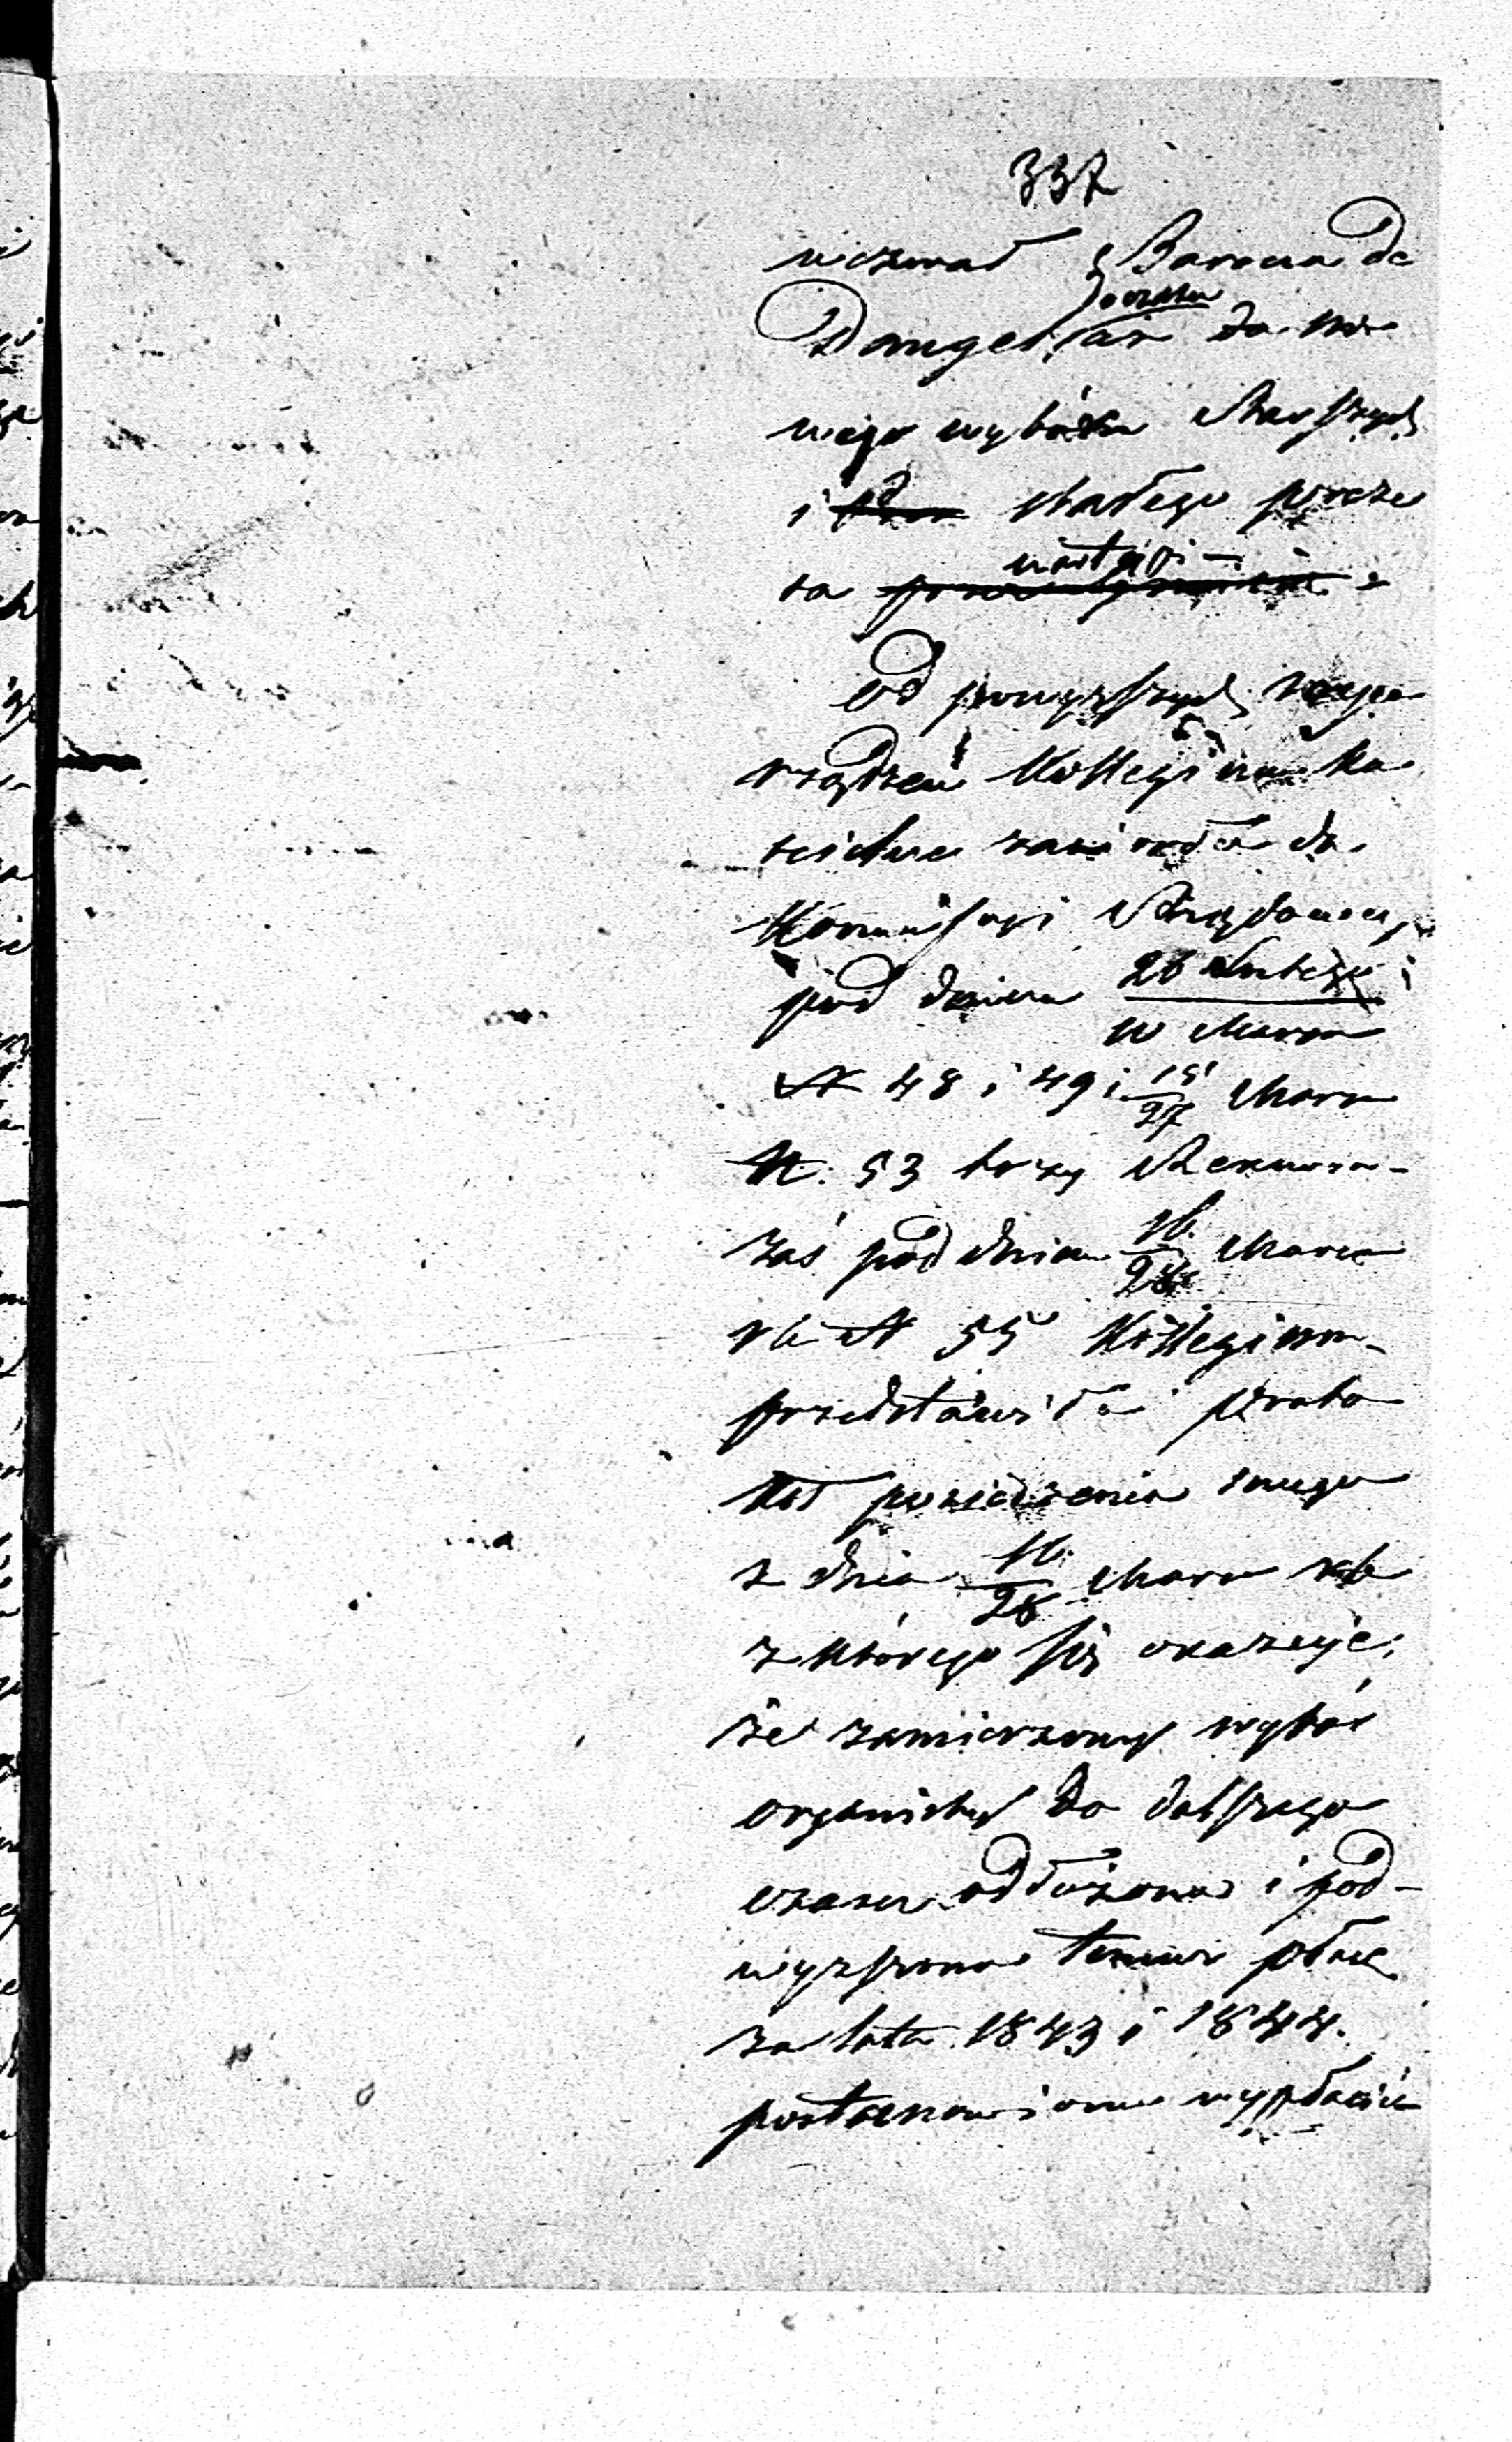 337
wiezwać Barona de
Dangel, aż do no
wego wyboru Starszych
i stałego preze
sa nastąpi
Od powyższych rozpo
rządzeń Kollegium Ko
ścielne zaniosło do
Kommissyi Rządowej
pod dniem 26 Lutego
10 Marca
N 48 i 49 i 15/27 Marca
N. 53 trzy Rekursa
zaś pod dniem 16/28 Marca
rb N 55 Kollegium
przedstawiło proto
kół posiedzenia swego
z dnia 16/28 Marca rb
z którego się okazuje,
że zamierzony wybór
organisty do dalszego
czasu odłożono i pod-
wyższono temuż płacę
za lata 1843 i 1844.
postanowiono wypłacić